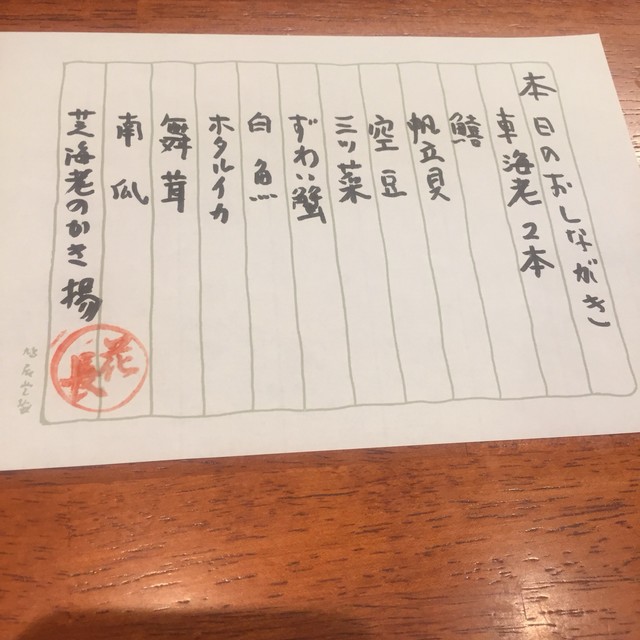 本日のおしながき
車海老2本
鱚
帆立貝
空豆
三ツ葉
ずわい蟹
白魚
ホタルイカ
舞茸
南瓜
芝海老のかき揚
花長